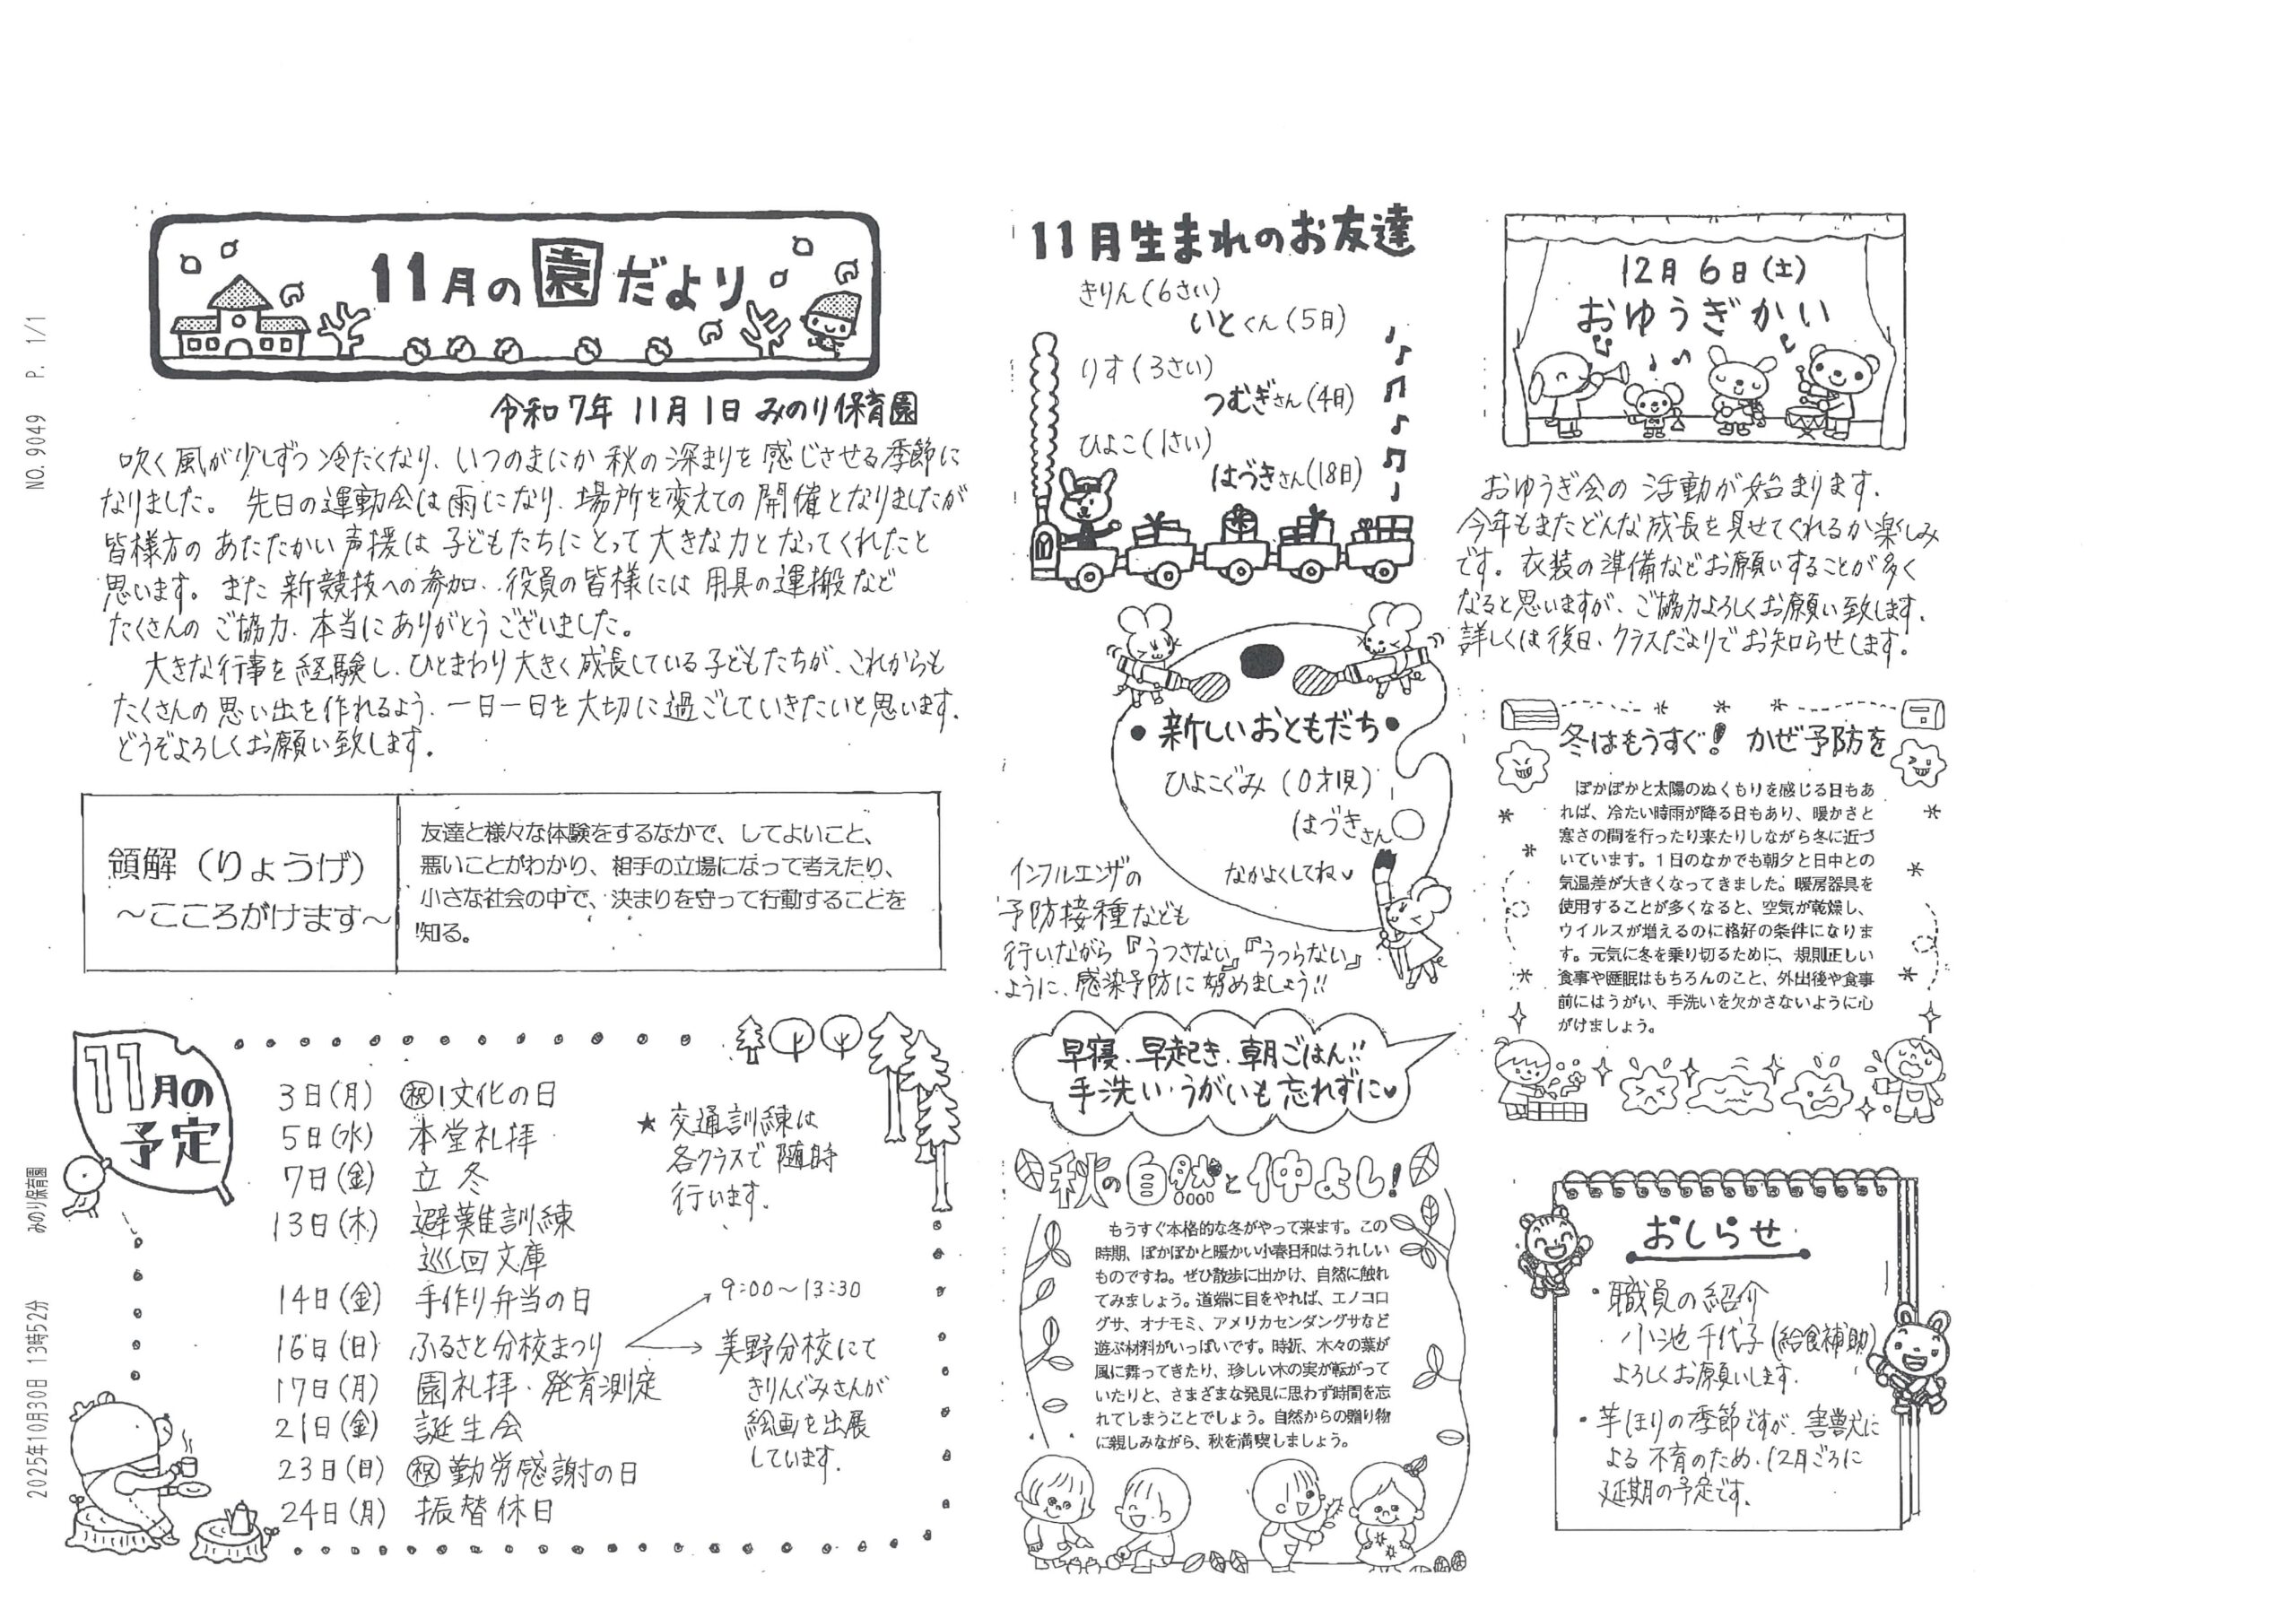 11月の園だより
令和7年 11月1日 みのり保育園
吹く風が少しずつ冷たくなり、いつのまにか秋の深まりを感じさせる季節に
なりました。先日の運動会は雨になり、場所を変えての開催となりましたが
皆様方のあたたかい声援は子どもたちにとって大きな力となってくれたと
思います。また新競技への参加、役員の皆様には用具の運搬など
たくさんのご協力、本当にありがとうございました。
大きな行事を経験し、ひとまわり大きく成長している子どもたちが、これからも
たくさんの思い出を作れるよう、一日一日を大切に過ごしていきたいと思います。
どうぞよろしくお願い致します。
領解（りょうげ）
～こころがけます～
友達と様々な体験をするなかで、してよいこと、
悪いことがわかり、相手の立場になって考えたり、
小さな社会の中で、決まりを守って行動することを
知る。
11月の
予定
3日(月) ㊗文化の日
5日(水) 本堂礼拝
7日(金) 立冬
13日(木) 避難訓練
巡回文庫
14日(金) 手作り弁当の日
16日(日) ふるさと分校まつり
17日(月) 園礼拝・発育測定
21日(金) 誕生会
23日(日) ㊗勤労感謝の日
24日(月) 振替休日
★ 交通訓練は
各クラスで随時
行います。
9:00～13:30
美野分校にて
きりんぐみさんが
絵画を出展
しています。
11月生まれのお友達
きりん(6さい)
いとくん(5日)
りす(3さい)
つむぎさん(4日)
ひよこ(1さい)
はづきさん(18日)
・新しいおともだち・
ひよこぐみ(0才児)
はづきさん
なかよくしてね♡
インフルエンザの
予防接種なども
行いながら『うつさない』『うつらない』
ように、感染予防に努めましょう!!
早寝、早起き、朝ごはん!!
手洗い・うがいも忘れずに♡
秋の自然と仲よし!
もうすぐ本格的な冬がやって来ます。この
時期、ぽかぽかと暖かい小春日和はうれしい
ものですね。ぜひ散歩に出かけ、自然に触れ
てみましょう。道端に目をやれば、エノコロ
グサ、オナモミ、アメリカセンダングサなど
遊ぶ材料がいっぱいです。時折、木々の葉が
風に舞ってきたり、珍しい木の実が転がって
いたりと、さまざまな発見に思わず時間を忘
れてしまうことでしょう。自然からの贈り物
に親しみながら、秋を満喫しましょう。
12月6日(土)
おゆうぎかい
おゆうぎ会の活動が始まります。
今年もまたどんな成長を見せてくれるか楽しみ
です。衣装の準備などお願いすることが多く
なると思いますが、ご協力よろしくお願い致します。
詳しくは後日、クラスだよりでお知らせします。
冬はもうすぐ! かぜ予防を
ぽかぽかと太陽のぬくもりを感じる日もあ
れば、冷たい時雨が降る日もあり、暖かさと
寒さの間を行ったり来たりしながら冬に近づ
いています。1日のなかでも朝夕と日中との
気温差が大きくなってきました。暖房器具を
使用することが多くなると、空気が乾燥し、
ウイルスが増えるのに格好の条件になりま
す。元気に冬を乗り切るために、規則正しい
食事や睡眠はもちろんのこと、外出後や食事
前にはうがい、手洗いを欠かさないように心
がけましょう。
おしらせ
・職員の紹介
小池 千代子(給食補助)
よろしくお願いします。
・芋ほりの季節ですが、害獣に
よる不育のため、12月ごろに
延期の予定です。
2025年10月30日 13時52分 みのり保育園 NO. 9049 P. 1/1